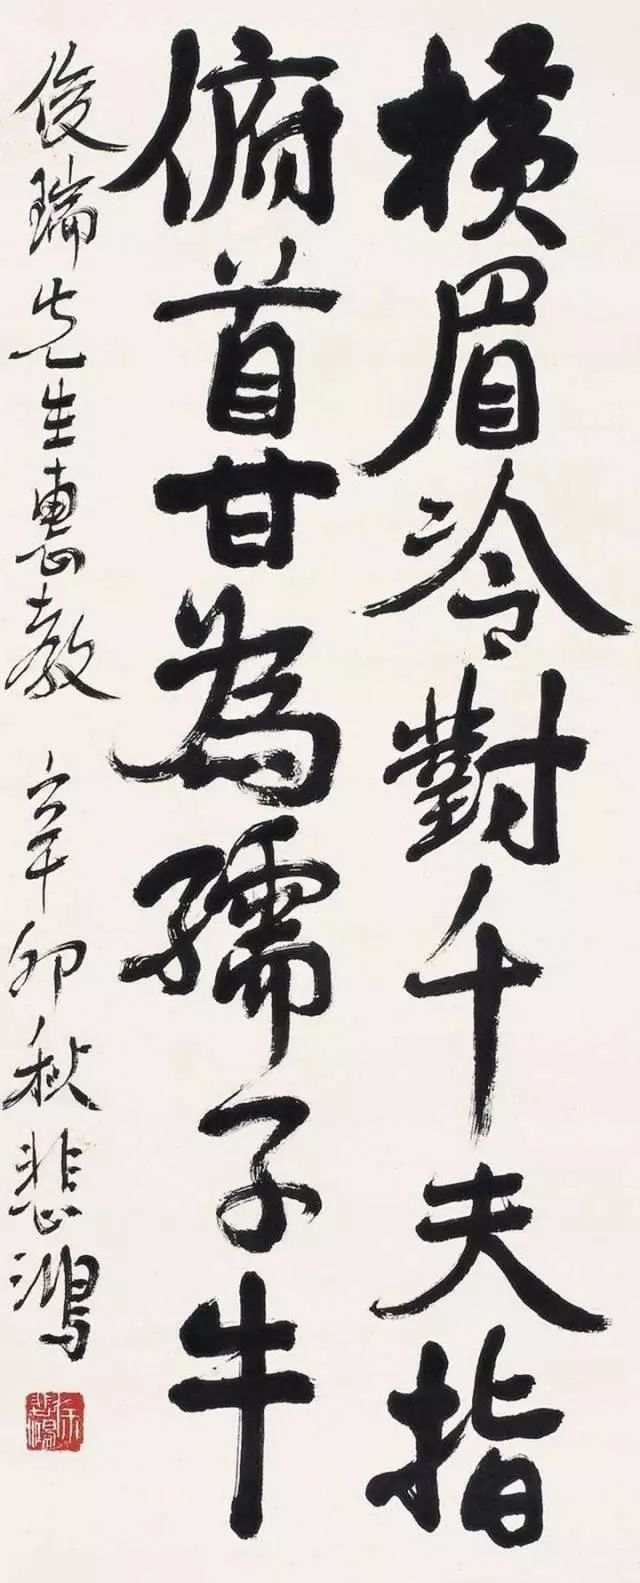 横眉冷對千夫指
俯首甘為孺子牛
俊瑞先生惠教 辛卯秋 悲鴻
徐悲鴻